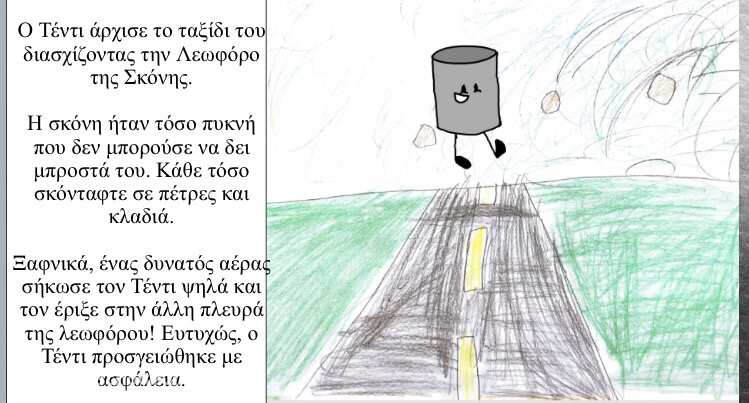 Ο Τέντι άρχισε το ταξίδι του
διασχίζοντας την Λεωφόρο
της Σκόνης.
Η σκόνη ήταν τόσο πυκνή
που δεν μπορούσε να δει
μπροστά του. Κάθε τόσο
σκόνταφτε σε πέτρες και
κλαδιά.
Ξαφνικά, ένας δυνατός αέρας
σήκωσε τον Τέντι ψηλά και
τον έριξε στην άλλη πλευρά
της λεωφόρου! Ευτυχώς, ο
Τέντι προσγειώθηκε με
ασφάλεια.